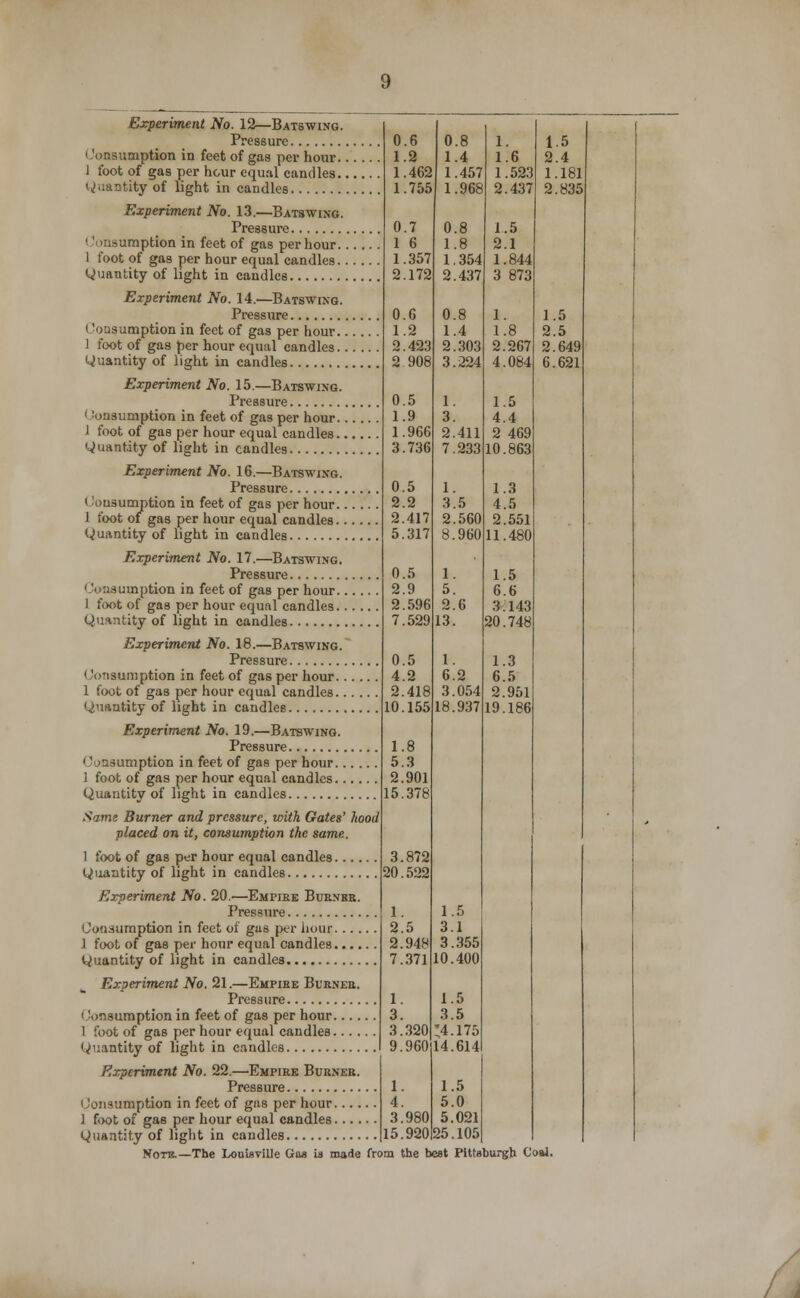 9
Experiment No. 12—Batswing.
Pressure............ 0.6 0.8 1. 1.5
Consumption in feet of gas per hour...... 1.2 1.4 1.6 2.4
1 foot of gas per hour equal candles...... 1.462 1.457 1.523 1.181
Quantity of light in candles............ 1.755 1.968 2.437 2.835
Experiment No. 13.—Batswing.
Pressure............ 0.7 0.8 1.5
Consumption in feet of gas per hour...... 1 6 1.8 2.1
1 foot of gas per hour equal candles...... 1.357 1.354 1.844
Quantity of light in candles............ 2.172 2.437 3 873
Experiment No. 14.—Batswing.
Pressure............ 0.6 0.8 1. 1.5
Consumption in feet of gas per hour...... 1.2 1.4 1.8 2.5
1 foot of gas per hour equal candles...... 2.423 2.303 2.267 2.649
Quantity of light in candles............ 2 908 3.224 4.084 6.621
Experiment No. 15.—Batswing.
Pressure............ 0.5 1. 1.5
Consumption in feet of gas per hour...... 1.9 3. 4.4
1 foot of gas per hour equal candles...... 1.966 2.411 2 469
Quantity of light in candles............ 3.736 7.233 10.863
Experiment No. 16.—Batswing.
Pressure............ 0.5 1. 1.3
Consumption in feet of gas per hour...... 2.2 3.5 4.5
1 foot of gas per hour equal candles...... 2.417 2.560 2.551
Quantity of light in candles............ 5.317 8.960 11.480
Experiment No. 17.—Batswing.
Pressure............ 0.5 1. 1.5
Consumption in feet of gas per hour...... 2.9 5. 6.6
1 foot of gas per hour equal candles...... 2.596 2.6 3.143
Quantity of light in candles............ 7.529 13. 20.748
Experiment No. 18.—Batswing.
Pressure............ 0.5 1. 1.3
Consumption in feet of gas per hour...... 4.2 6.2 6.5
1 foot of gas per hour equal candles...... 2.418 3.054 2.951
Quantity of light in candles............ 10.155 18.937 19.186
Experiment No. 19.—Batswing.
Pressure............ 1.8
Consumption in feet of gas per hour...... 5.3
1 foot of gas per hour equal candles...... 2.901
Quantity of light in candles............ 15.378
Same Burner and pressure, with Gates' hood
placed on it, consumption the same.
1 foot of gas per hour equal candles...... 3.872
Quantity of light in candles............ 20.522
Experiment No. 20.—Empire Burner.
Pressure............ 1. 1.5
Consumption in feet of gas per hour...... 2.5 3.1
1 foot of gas per hour equal candles...... 2.948 3.355
Quantity of light in candles............ 7.371 10.400
Experiment No. 21.—Empire Burner.
Pressure............ 1. 1.5
Consumption in feet of gas per hour...... 3. 3.5
1 foot of gas per hour equal candles...... 3.320 4.175
Quantity of light in candles............ 9.960 14.614
Experiment No. 22.—Empire Burner.
Pressure............ 1. 1.5
Consumption in feet of gas per hour...... 4. 5.0
1 foot of gas per hour equal candles...... 3.980 5.021
Quantity of light in candles............ 15.920 25.105
Note.—The Louisville Gas is made from the best Pittsburgh Coal.